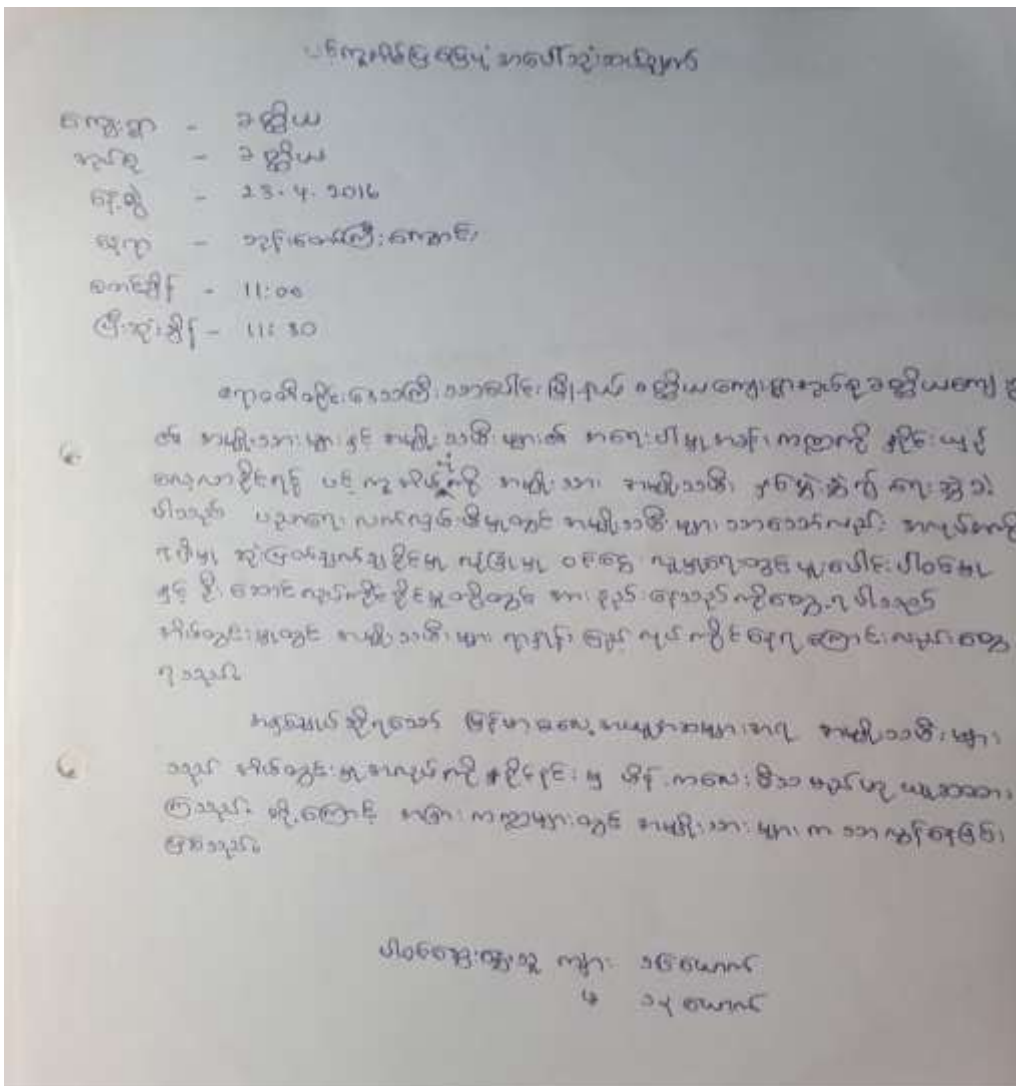 ပင်ကူအိမ်ပြမြေပုံ အပေါ်သုံးသပ်ချက်
ကျေးရွာ - ခတ္တိယ
အုပ်စု - ခတ္တိယ
နေ့စွဲ - 23.4.2016
နေရာ - ဘုန်းတော်ကြီးကျောင်း
စတင်ချိန် - 11:00
ပြီးဆုံးချိန် - 11:30
ဧရာဝတီတိုင်းဒေသကြီး ပြိုနယ် ခတ္တိယကျေးရွာအုပ်စု ခတ္တိယကျေးရွာ
၏ အမျိုးသားများနှင့် အမျိုးသမီးများ၏ အရေးပါမှုအခန်းကဏ္ဍကို နှိုင်းယှဉ်
လေ့လာနိုင်ရန် ပင့်ကူအိမ်ပုံကို အမျိုးသား အမျိုးသမီး ရေးဆွဲခဲ့
ပါသည်။ ပညာရေး လက်လှမ်းမီမှုတွင် အမျိုးသမီးများ သာသော်လည်း
ဆုံးဖြတ်ချက်ချနိုင်မှု လုံခြုံမှု ဝင်ငွေ လူမှုရေးတွင် ပူးပေါင်းပါဝင်မှု
နှင့် ဦးဆောင်လုပ်ကိုင်နိုင်မှုတို့တွင် အားနည်းနေသည်ကိုတွေ့ရပါသည်။
အိမ်တွင်းမှုတွင် အမျိုးသမီးများ ရာနှုန်းပြည့် လုပ်ကိုင်နေရကြောင်းလည်းတွေ့
ရသည်။
အဘယ်ဆိုရသော် မြန်မာဓလေ့အယူအဆများအရ အမျိုးသမီးများ
သည် အိမ်တွင်းမှုအလုပ်ကို မိန်းကလေးပီသမည်ဟု ယူဆထား
ကြသည်။ ထို့ကြောင့် အခြားကဏ္ဍများတွင် အမျိုးသားများက သာလွန်နေခြင်း
ဖြစ်သည်။
ပါဝင်ဆွေးနွေးသူ ကျား ယောက်
မ ယောက်